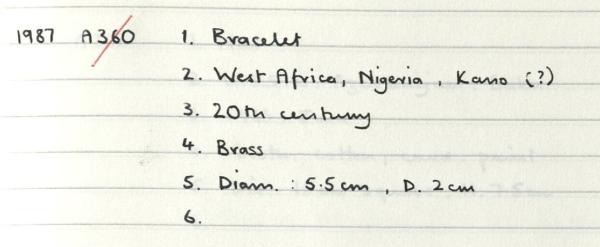 1987 A360 1. Bracelet
2. West Africa, Nigeria, Kano (?)
3. 20th century
4. Brass
5. Diam. : 5.5cm, D. 2cm
6.